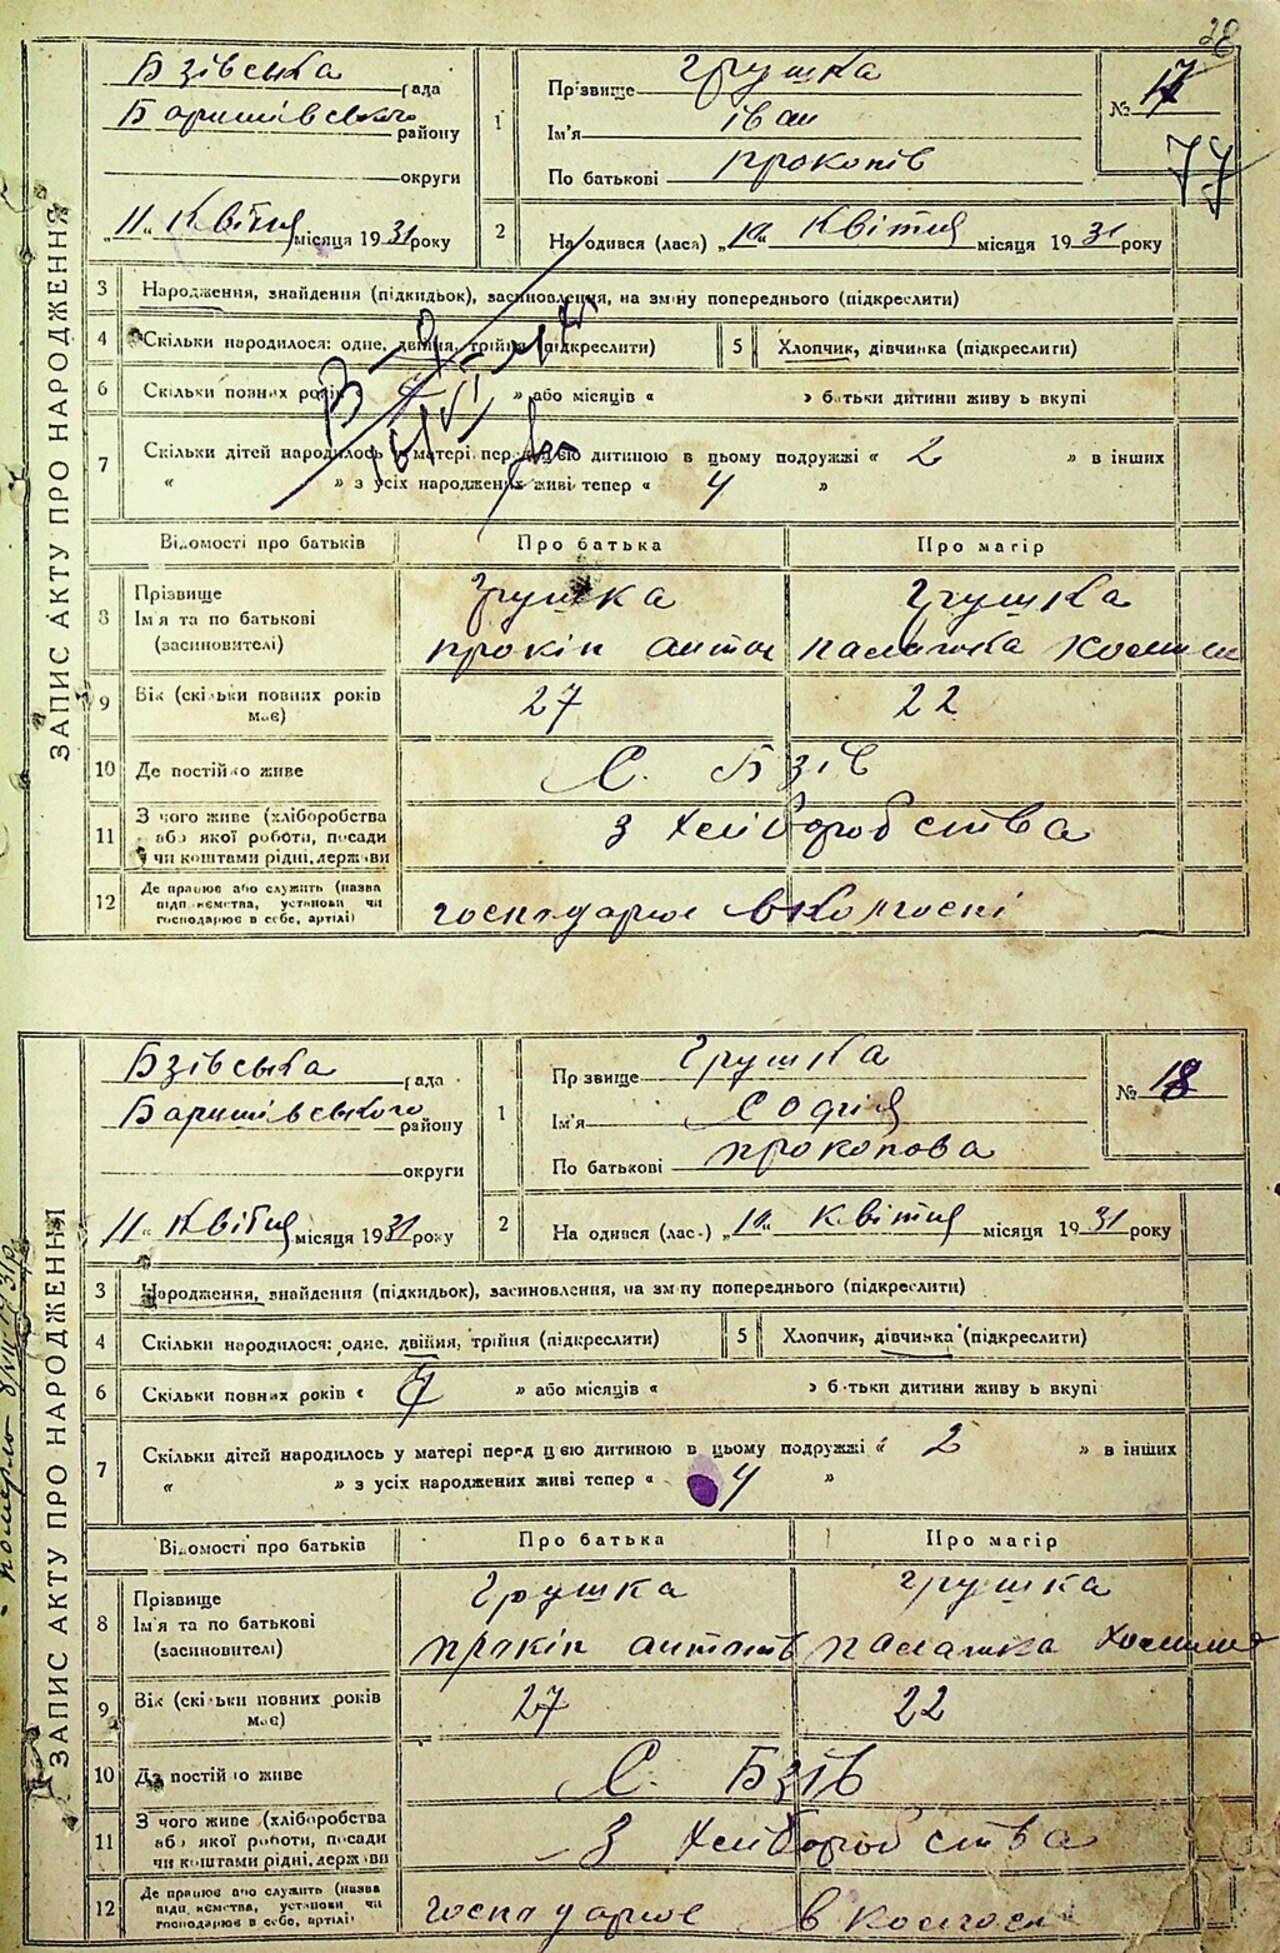 28
ЗАПИС АКТУ ПРО НАРОДЖЕННЯ
Бзівська рада
Баришівського району
округи
„11“ Квітня місяця 1931 року
1
Прізвище Грушка
Ім'я іван
По батькові прокопів
№ 17
77
2
Народився (лася) „10“ Квітня місяця 1931 року
3 Народження, знайдення (підкидьок), засиновлення, на зміну попереднього (підкреслити)
4 Скільки народилося: одне, двійня, трійня (підкреслити)
5 Хлопчик, дівчинка (підкреслити)
6 Скільки повних років « » або місяців « » батьки дитини живуть вкупі
7 Скільки дітей народилось у матері перед цією дитиною в цьому подружжі « 2 » в інших
« » з усіх народжених живі тепер « 4 »
Відомості про батьків Про батька Про матір
8 Прізвище
Ім'я та по батькові
(засиновителі)
Грушка Грушка
прокіп антон палашка
9 Вік (скільки повних років має) 27 22
10 Де постійно живе С. Бзів
11 З чого живе (хліборобства
або якої роботи, посади
чи коштами рідні, держави
з хліборобства
12 Де працює або служить (назва
підприємства, установи чи
господарює в себе, артілі)
господарює в колгоспі
ЗАПИС АКТУ ПРО НАРОДЖЕННЯ
Бзівська рада
Баришівського району
округи
11“ Квітня місяця 1931 року
1
Прізвище Грушка
Ім'я софія
По батькові прокопова
№ 18
2
Народився (лася) „10“ квітня місяця 1931 року
3 Народження, знайдення (підкидьок), засиновлення, на зміну попереднього (підкреслити)
4 Скільки народилося: одне, двійня, трійня (підкреслити)
5 Хлопчик, дівчинка (підкреслити)
6 Скільки повних років « 4 » або місяців « » батьки дитини живуть вкупі
7 Скільки дітей народилось у матері перед цією дитиною в цьому подружжі « 2 » в інших
« » з усіх народжених живі тепер « 4 »
Відомості про батьків Про батька Про матір
8 Прізвище
Ім'я та по батькові
(засиновителі)
Грушка грушка
прокіп антонів палашка
9 Вік (скільки повних років має) 27 22
10 Де постійно живе С. Бзів
11 З чого живе (хліборобства
або якої роботи, посади
чи коштами рідні, держави
З хліборобства
12 Де працює або служить (назва
підприємства, установи чи
господарює в себе, артілі)
господарює в колгосп